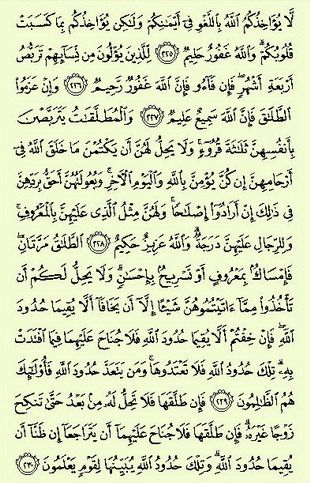 لَّا يُؤَاخِذُكُمُ ٱللَّهُ بِٱللَّغْوِ فِىٓ أَيْمَـٰنِكُمْ وَلَـٰكِن يُؤَاخِذُكُم بِمَا كَسَبَتْ
قُلُوبُكُمْ ۗ وَٱللَّهُ غَفُورٌ حَلِيمٌ ﴿٢٢٥﴾ لِّلَّذِينَ يُؤْلُونَ مِن نِّسَآئِهِمْ تَرَبُّصُ
أَرْبَعَةِ أَشْهُرٍ ۖ فَإِن فَآءُو فَإِنَّ ٱللَّهَ غَفُورٌ رَّحِيمٌ ﴿٢٢٦﴾ وَإِنْ عَزَمُوا۟
ٱلطَّلَـٰقَ فَإِنَّ ٱللَّهَ سَمِيعٌ عَلِيمٌ ﴿٢٢٧﴾ وَٱلْمُطَلَّقَـٰتُ يَتَرَبَّصْنَ
بِأَنفُسِهِنَّ ثَلَـٰثَةَ قُرُوٓءٍ ۚ وَلَا يَحِلُّ لَهُنَّ أَن يَكْتُمْنَ مَا خَلَقَ ٱللَّهُ فِىٓ
أَرْحَامِهِنَّ إِن كُنَّ يُؤْمِنَّ بِٱللَّهِ وَٱلْيَوْمِ ٱلْـَٔاخِرِ ۚ وَبُعُولَتُهُنَّ أَحَقُّ بِرَدِّهِنَّ
فِى ذَٰلِكَ إِنْ أَرَادُوٓا۟ إِصْلَـٰحًا ۚ وَلَهُنَّ مِثْلُ ٱلَّذِى عَلَيْهِنَّ بِٱلْمَعْرُوفِ ۚ
وَلِلرِّجَالِ عَلَيْهِنَّ دَرَجَةٌ ۗ وَٱللَّهُ عَزِيزٌ حَكِيمٌ ﴿٢٢٨﴾ ٱلطَّلَـٰقُ مَرَّتَانِ ۖ
فَإِمْسَاكٌۢ بِمَعْرُوفٍ أَوْ تَسْرِيحٌۢ بِإِحْسَـٰنٍ ۗ وَلَا يَحِلُّ لَكُمْ أَن
تَأْخُذُوا۟ مِمَّآ ءَاتَيْتُمُوهُنَّ شَيْـًٔا إِلَّآ أَن يَخَافَآ أَلَّا يُقِيمَا حُدُودَ
ٱللَّهِ ۖ فَإِنْ خِفْتُمْ أَلَّا يُقِيمَا حُدُودَ ٱللَّهِ فَلَا جُنَاحَ عَلَيْهِمَا فِيمَا ٱفْتَدَتْ
بِهِۦ ۗ تِلْكَ حُدُودُ ٱللَّهِ فَلَا تَعْتَدُوهَا ۚ وَمَن يَتَعَدَّ حُدُودَ ٱللَّهِ فَأُو۟لَـٰٓئِكَ
هُمُ ٱلظَّـٰلِمُونَ ﴿٢٢٩﴾ فَإِن طَلَّقَهَا فَلَا تَحِلُّ لَهُۥ مِنۢ بَعْدُ حَتَّىٰ تَنكِحَ
زَوْجًا غَيْرَهُۥ ۗ فَإِن طَلَّقَهَا فَلَا جُنَاحَ عَلَيْهِمَآ أَن يَتَرَاجَعَآ إِن ظَنَّآ أَن
يُقِيمَا حُدُودَ ٱللَّهِ ۗ وَتِلْكَ حُدُودُ ٱللَّهِ يُبَيِّنُهَا لِقَوْمٍ يَعْلَمُونَ ﴿٢٣٠﴾